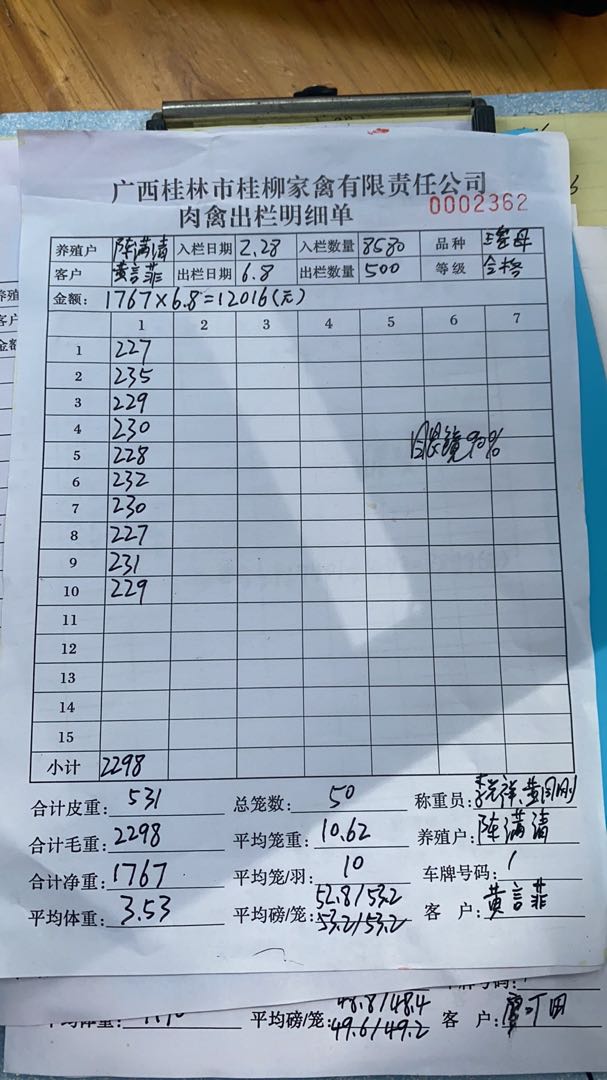 广西桂林市桂柳家禽有限责任公司
肉禽出栏明细单 0002362
养殖户 陈满清 入栏日期 2.28 入栏数量 8580 品种
客户 黄言菲 出栏日期 6.8 出栏数量 500 等级 合格
金额: 1767×6.8=12016(元)
1 2 3 4 5 6 7
1 227
2 235
3 229
4 230
5 228 眼镜90%
6 232
7 230
8 227
9 231
10 229
11
12
13
14
15
小计 2298
合计皮重: 531 总笼数: 50 称重员:
合计毛重: 2298 平均笼重: 10.62 养殖户: 陈满清
合计净重: 1767 平均笼/羽: 10 车牌号码: 1
平均体重: 3.53 平均磅/笼: 52.8/53.2 53.2/53.2 客 户: 黄言菲
平均磅/笼: 48.8/48.4 49.6/49.2 客 户: